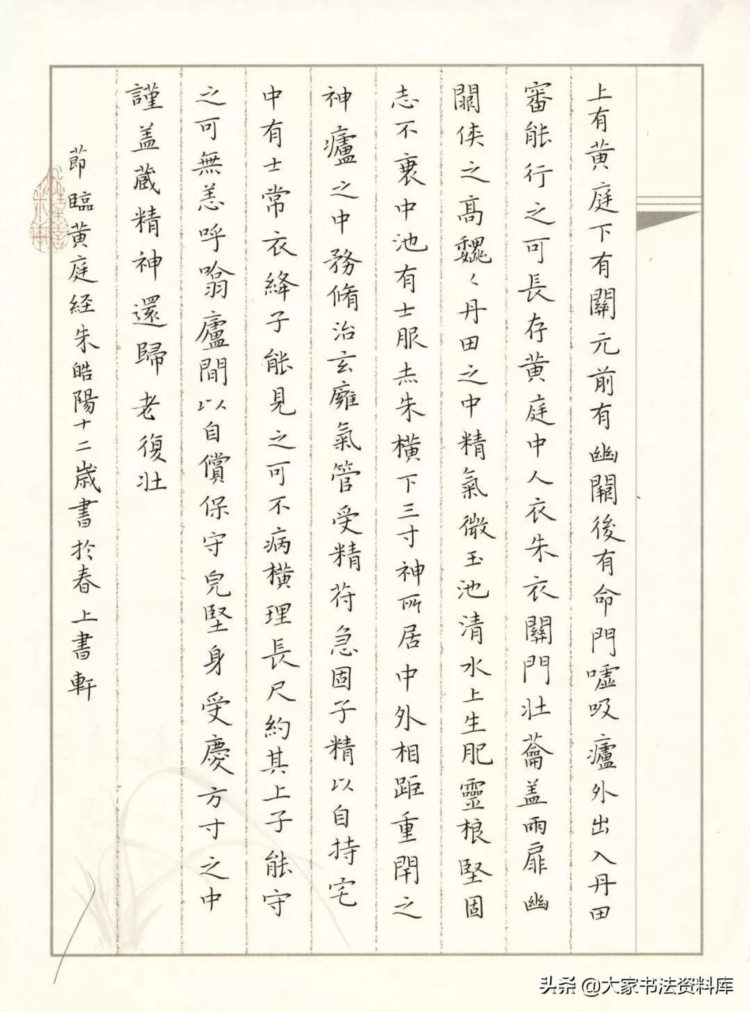 上有黄庭下有關元前有幽闕後有命門噓吸廬外出入丹田
審能行之可長存黄庭中人衣朱衣關門壯蘥盖兩扉幽
闕俠之高巍〻丹田之中精氣微玉池清水上生肥靈根堅固
志不衰中池有士服赤朱横下三寸神所居中外相距重閇之
神廬之中務脩治玄廱氣管受精苻急固子精以自持宅
中有士常衣絳子能見之可不病横理長尺約其上子能守
之可無恙呼噏廬間以自償保守皃堅身受慶方寸之中
謹盖蔵精神還歸老復壯
莭臨黄庭经朱皓陽十二歳書於春上書軒
头条 @大家书法资料库